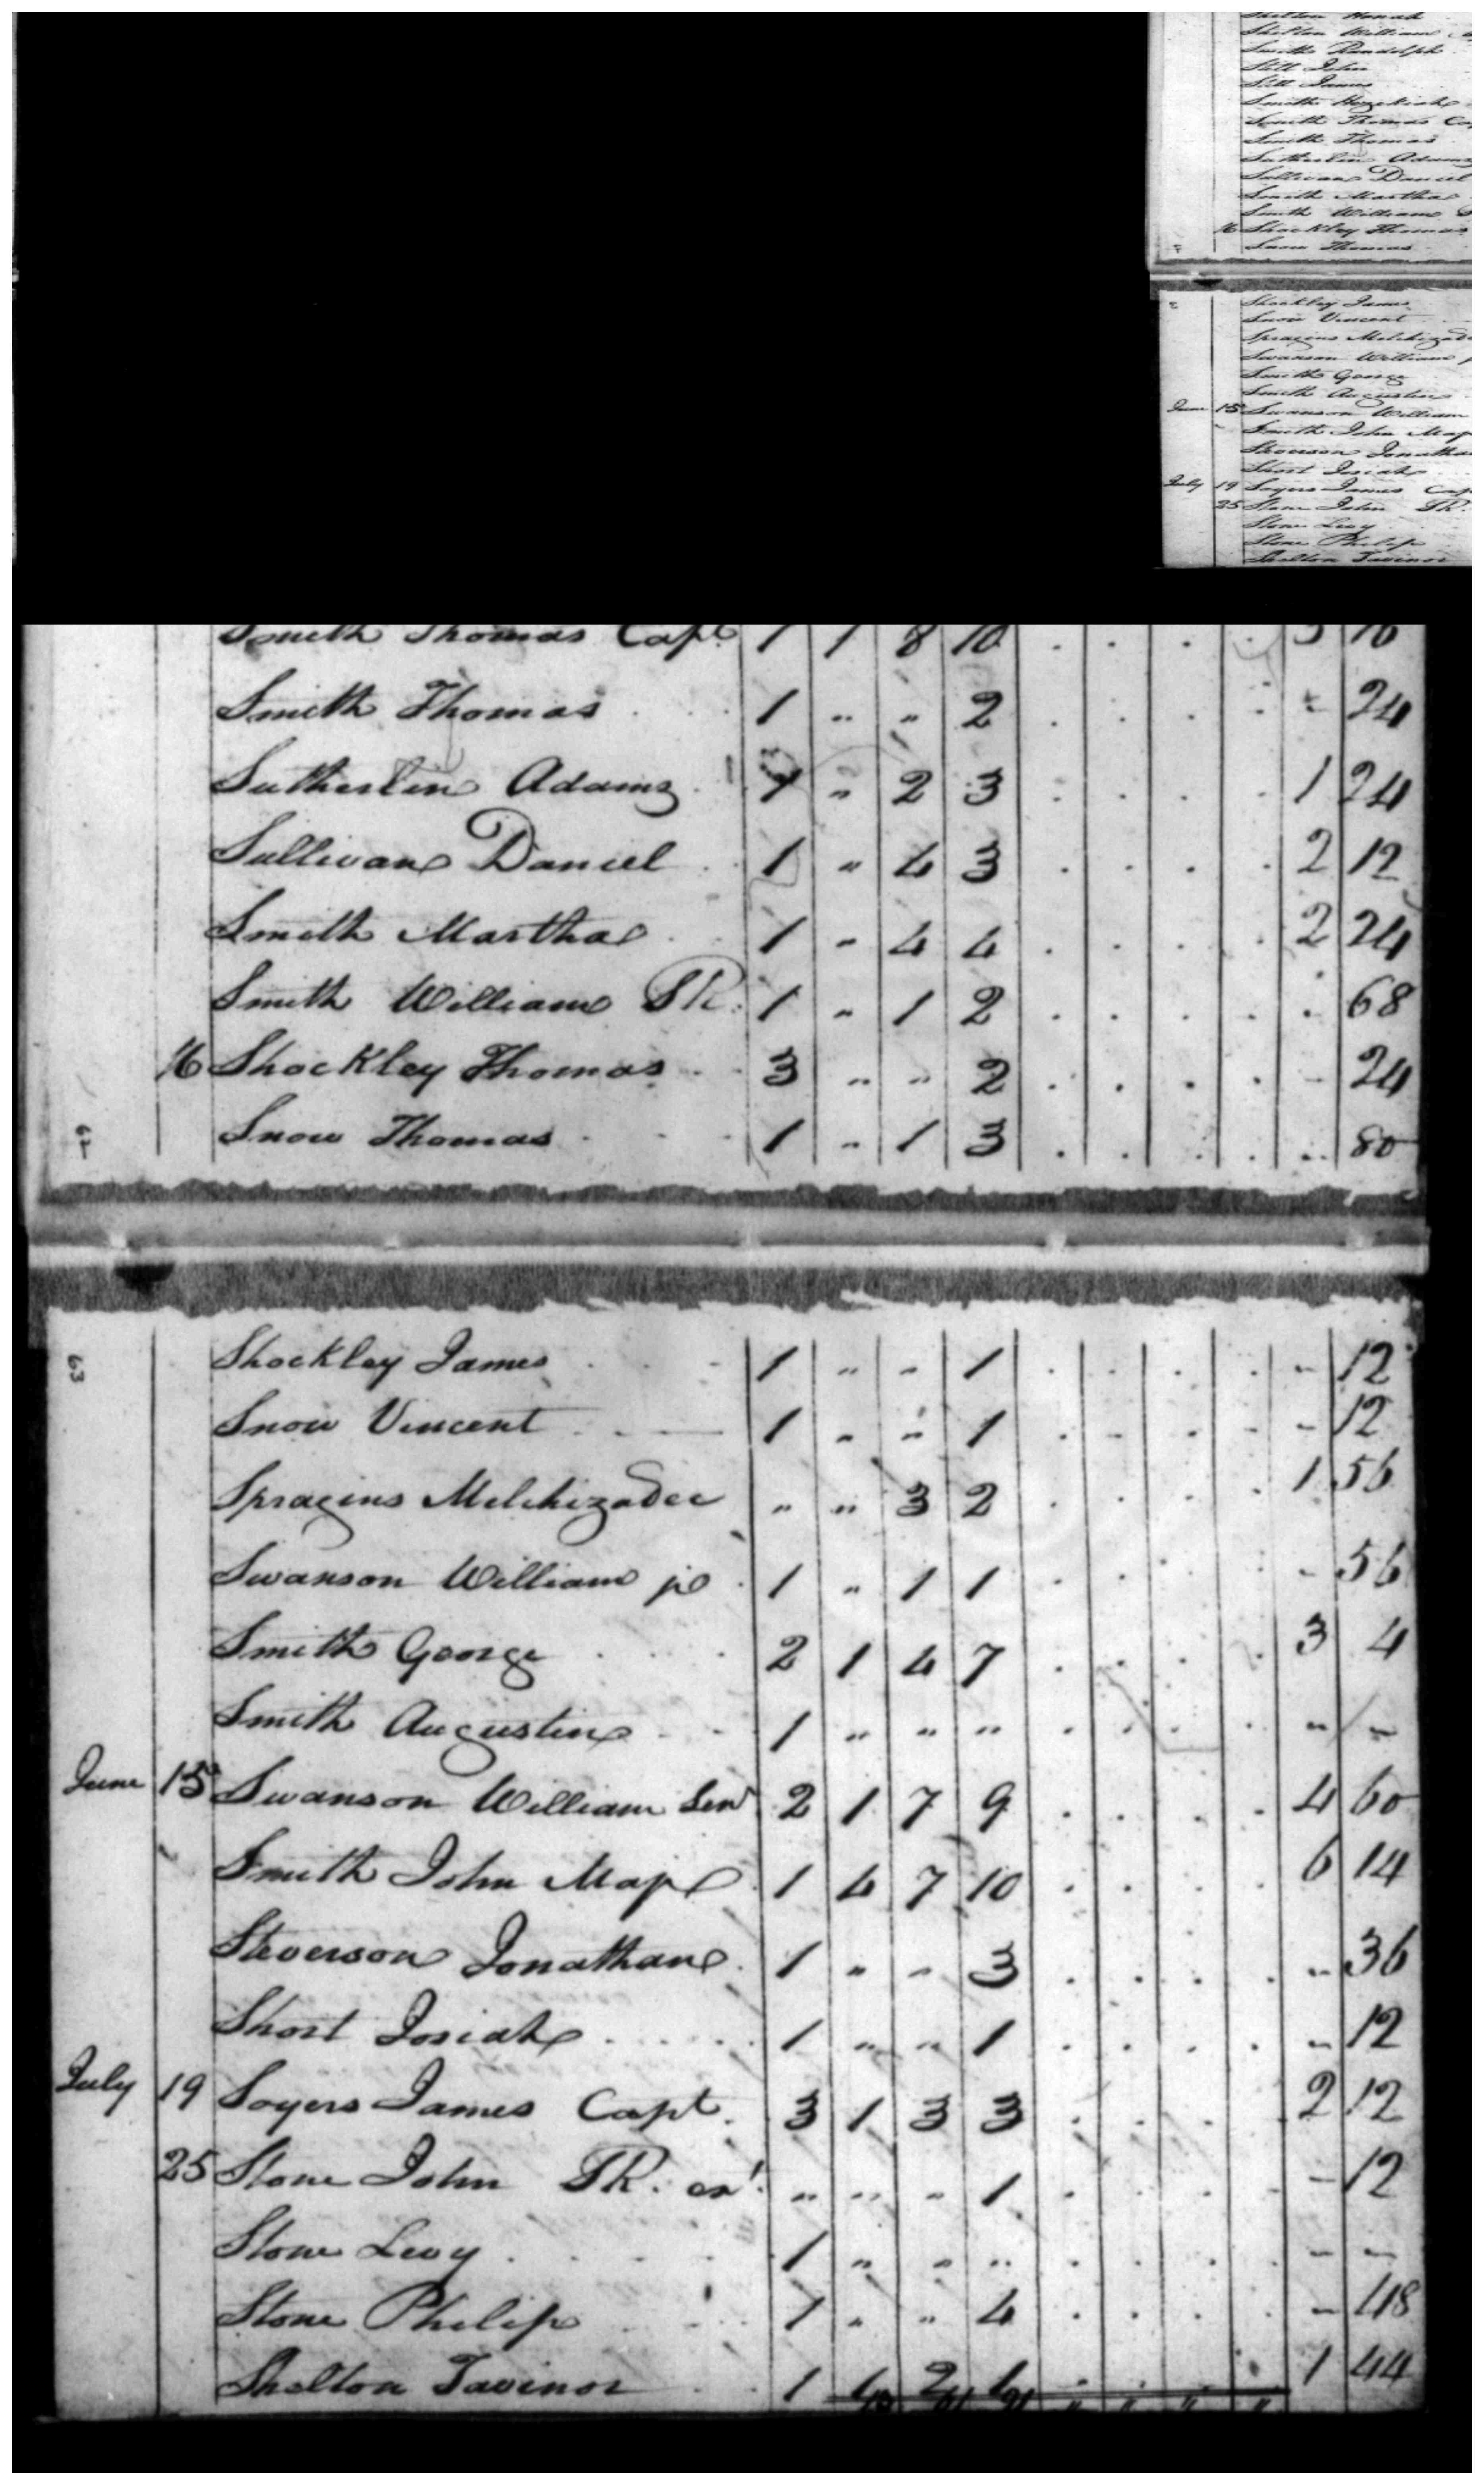 Shelton William
Smith Randolph
Still John
Still James
Smith Hezekiah
Smith Thomas Ca
Smith Thomas
Sutherlin Adams
Sullivan Daniel
Smith Martha
Smith William S
16 Shockley Thomas
Snow Thomas
Shockley James
Snow Vincent
Spragins Melchizade
Swanson William j
Smith George
Smith Augustine
June 15 Swanson William
Smith John Maj
Steverson Jonatha
Short Josiah
July 19 Soyers James Cap
25 Stone John SR.
Stone Levy
Stone Philip
Shelton Tavinor
Smith Thomas Capt 1 1 8 10 . . . . 5 76
Smith Thomas 1 " " 2 . . . . - 24
Sutherlin Adams 1 " 2 3 . . . . 1 24
Sullivan Daniel 1 " 4 3 . . . . 2 12
Smith Martha 1 " 4 4 . . . . 2 24
Smith William SR. 1 " 1 2 . . . . . 68
16 Shockley Thomas 3 " " 2 . . . . - 24
Snow Thomas 1 " 1 3 . . . . .. 80
63
Shockley James 1 " " 1 . . . . - 12
Snow Vincent 1 " " 1 . . . . - 12
Spragins Melchizadec " " 3 2 . . . . 1 56
Swanson William jr 1 " 1 1 . . . . - 56
Smith George 2 1 4 7 . . . . 3 4
Smith Augustine 1 " " " . . . . " -
June 15 Swanson William Senr 2 1 7 9 . . . . 4 60
Smith John Majr 1 4 7 10 . . . . 6 14
Steverson Jonathan 1 " " 3 . . . . - 36
Short Josiah 1 " " 1 . . . . - 12
July 19 Soyers James Capt. 3 1 3 3 . . . . 2 12
25 Stone John SR. " " " 1 . . . . - 12
Stone Levy 1 " " " . . . . - -
Stone Philip 1 " " 4 . . . . - 48
Shelton Tavinor 1 2 . . . . 1 44